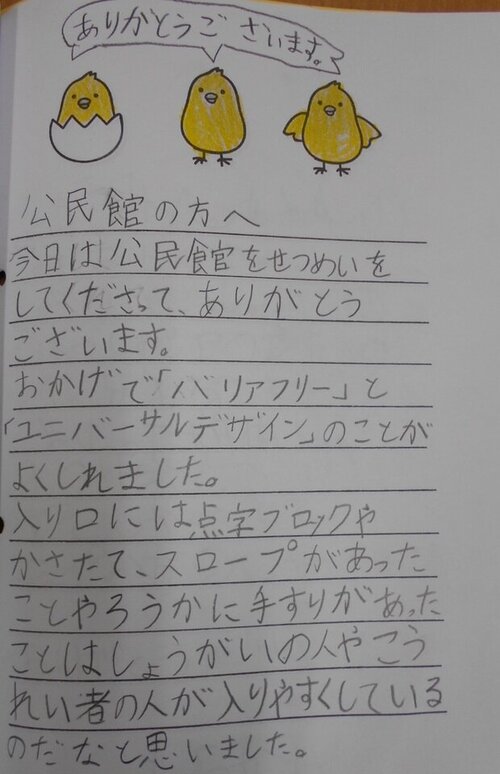 ありがとうございます。
公民館の方へ
今日は公民館をせつめいを
してくださって、ありがとう
ございます。
おかげで「バリアフリー」と
「ユニバーサルデザイン」のことが
よくしれました。
入り口には点字ブロックや
かさたて、スロープがあった
ことやろうかに手すりがあった
ことはしょうがいの人やこう
れい者の人が入りやすくしている
のだなと思いました。